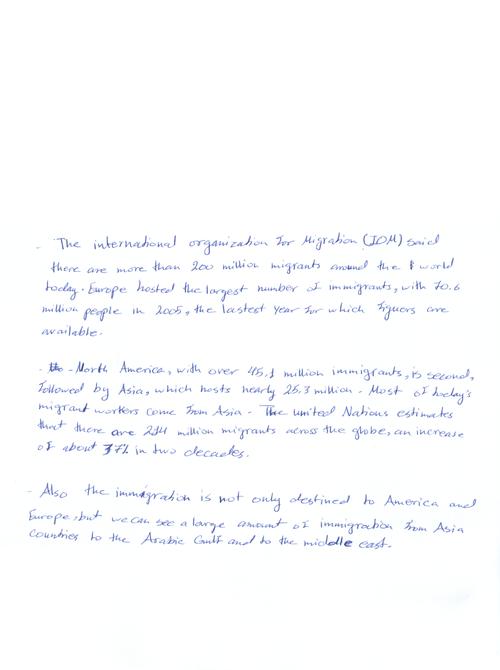 - The international organization for Migration (IOM) said
there are more than 200 million migrants around the world
today. Europe hosted the largest number of immigrants, with 70.6
million people in 2005, the lastest year for which figuers are
available.
- North America, with over 45,1 million immigrants, is second,
followed by Asia, which hosts nearly 25.3 million. Most of today's
migrant workers come from Asia - The united Nations estimates
that there are 214 million migrants across the globe, an increase
of about 37% in two decades.
- Also the immigration is not only destined to America and
Europe, but we can see a large amount of immigration from Asia
Countries to the Arabic Gulf and to the middle east.